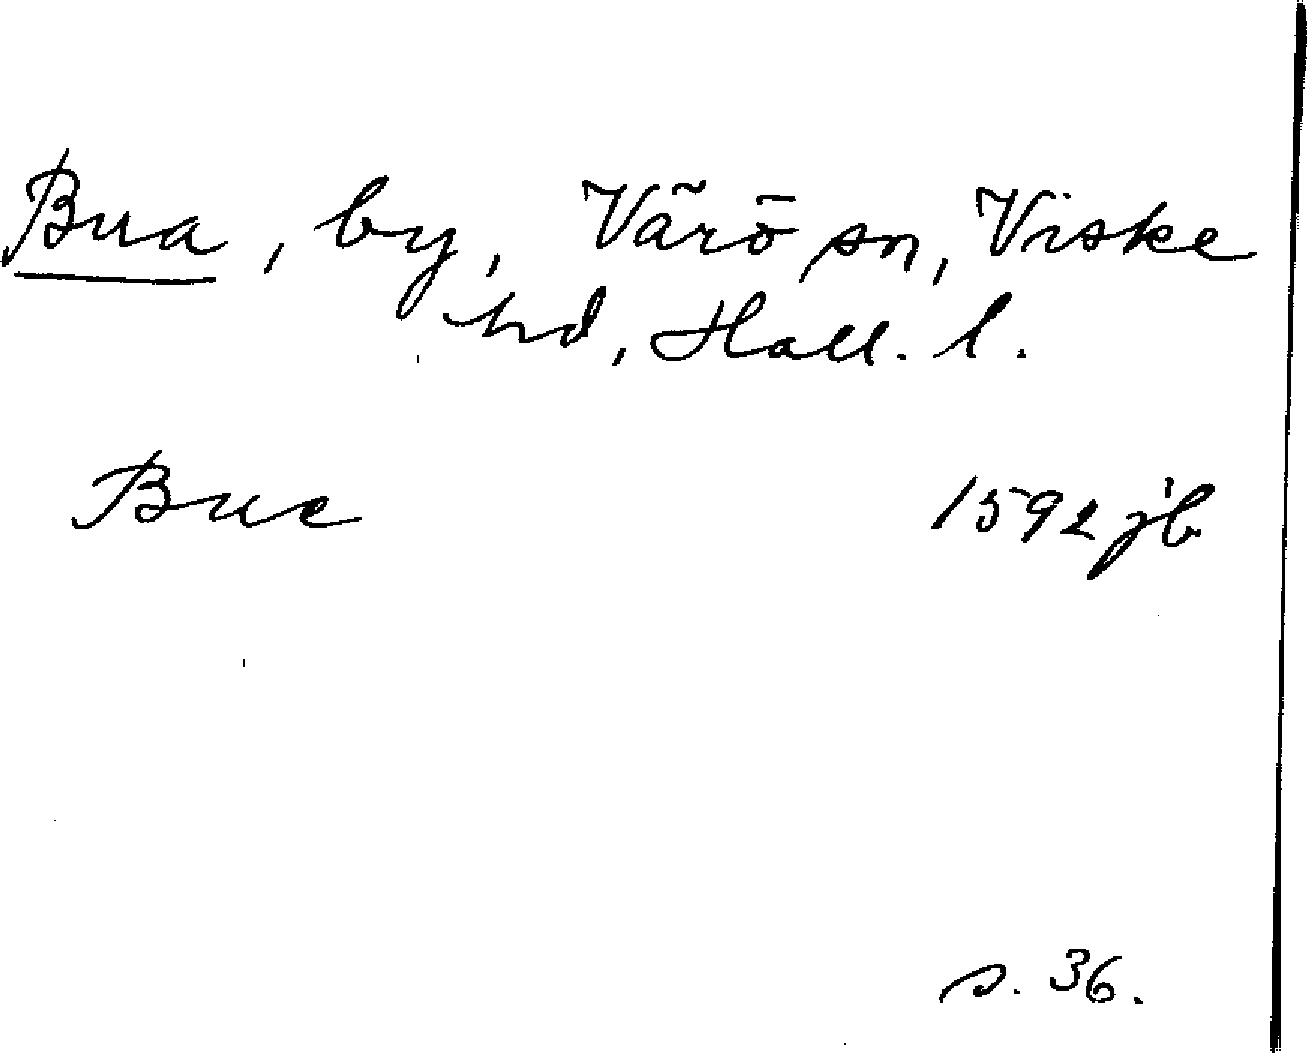 Bua, by, Värö sn, Viske
hd, Hall. l.
Bue 1592 jb
s. 36.